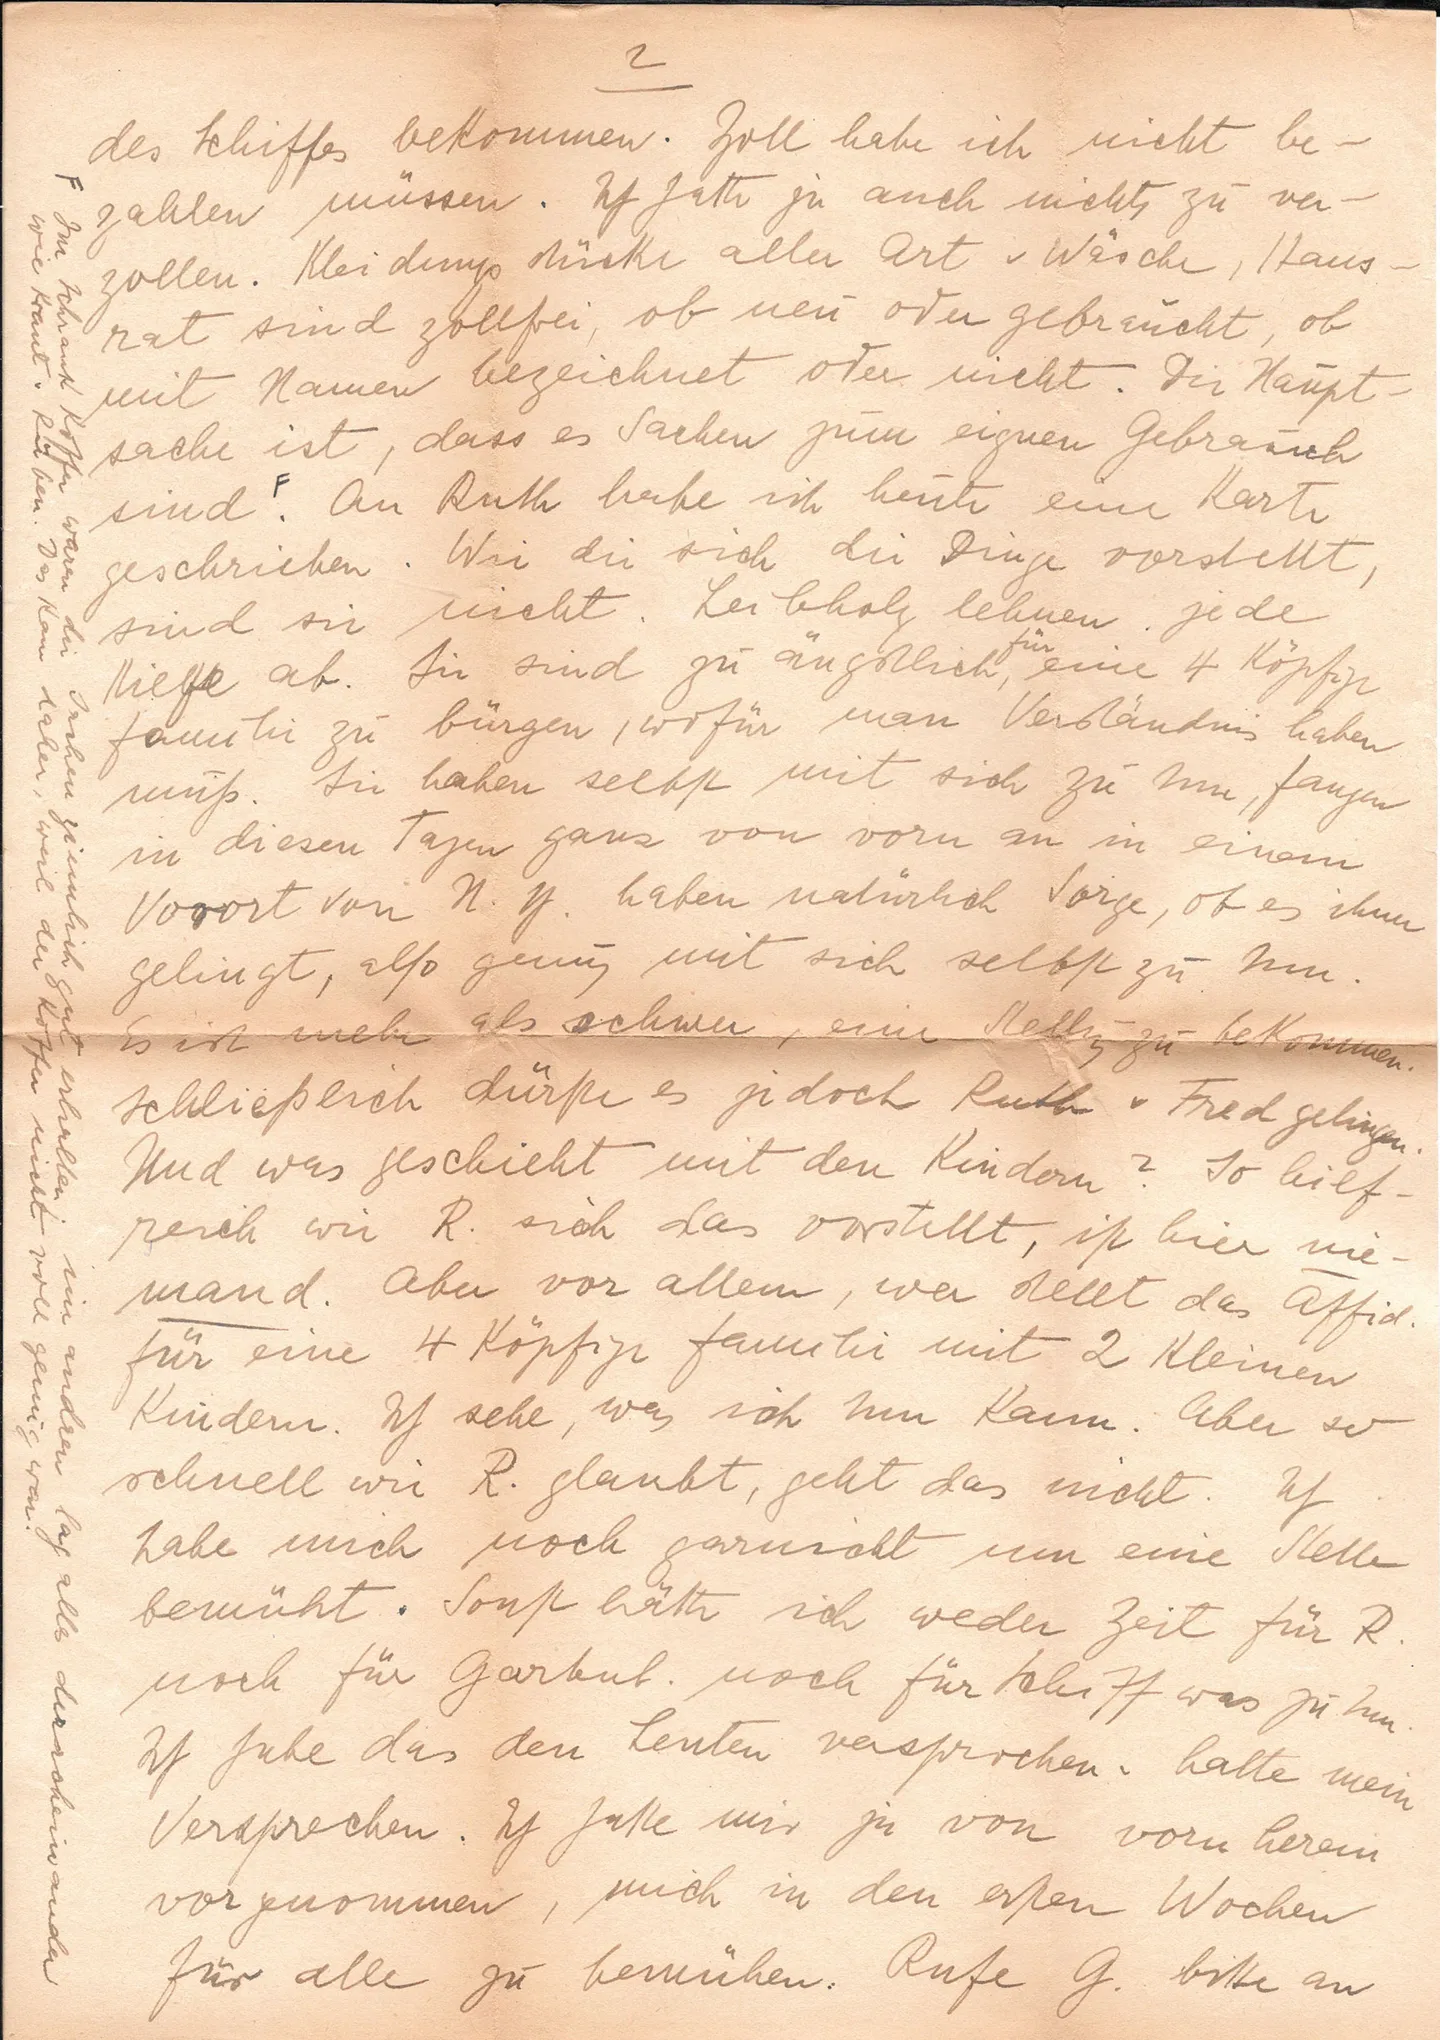 2
des Schiffes bekommen. Zoll habe ich nicht be-
zahlen müssen. Ich hatte ja auch nichts zu ver-
zollen. Kleidungsstücke aller Art u Wäsche, Haus-
rat sind zollfrei, ob neu oder gebraucht, ob
mit Namen bezeichnet oder nicht. Die Haupt-
sache ist, dass es Sachen zum eignen Gebrauch
sind F. An Ruth habe ich heute eine Karte
geschrieben. Wie die sich die Dinge vorstellt,
sind sie nicht. Leibholz lehnen jede
Hilfe ab. Sie sind zu ängstlich, für eine 4 Köpfige
Familie zu bürgen, wofür man Verständnis haben
muß. Sie haben selbst mit sich zu tun, fangen
in diesen Tagen ganz von vorn an in einem
Vorort von N. Y. haben natürlich Sorge, ob es ihnen
gelingt, also genug mit sich selbst zu tun.
Es ist mehr als schwer, eine Stellg zu bekommen.
Schließlich dürfte es jedoch Ruth u Fred gelingen.
Und was geschieht mit den Kindern? So hilf-
reich wie R. sich das vorstellt, ist hier nie-
mand. Aber vor allem, wer stellt das Affid.
für eine 4 Köpfige Familie mit 2 Kleinen
Kindern. Ich sehe, was ich tun kann. Aber so
schnell wie R. glaubt, geht das nicht. Ich
habe mich noch garnicht um eine Stelle
bemüht. Sonst hätte ich weder Zeit für R.
noch für . noch für Schiff was zu tun.
Ich habe das den Leuten versprochen u halte mein
Versprechen. Ich hatte mir ja von vorn herein
vorgenommen, mich in den ersten Wochen
für alle zu bemühen. Rufe G. bitte an
F Im Schrank Koffer waren die Sachen ziemlich gut erhalten, im andren lag alles durcheinander
wie Kraut u Rüben. Das kam daher, weil der Koffer nicht voll genug war.